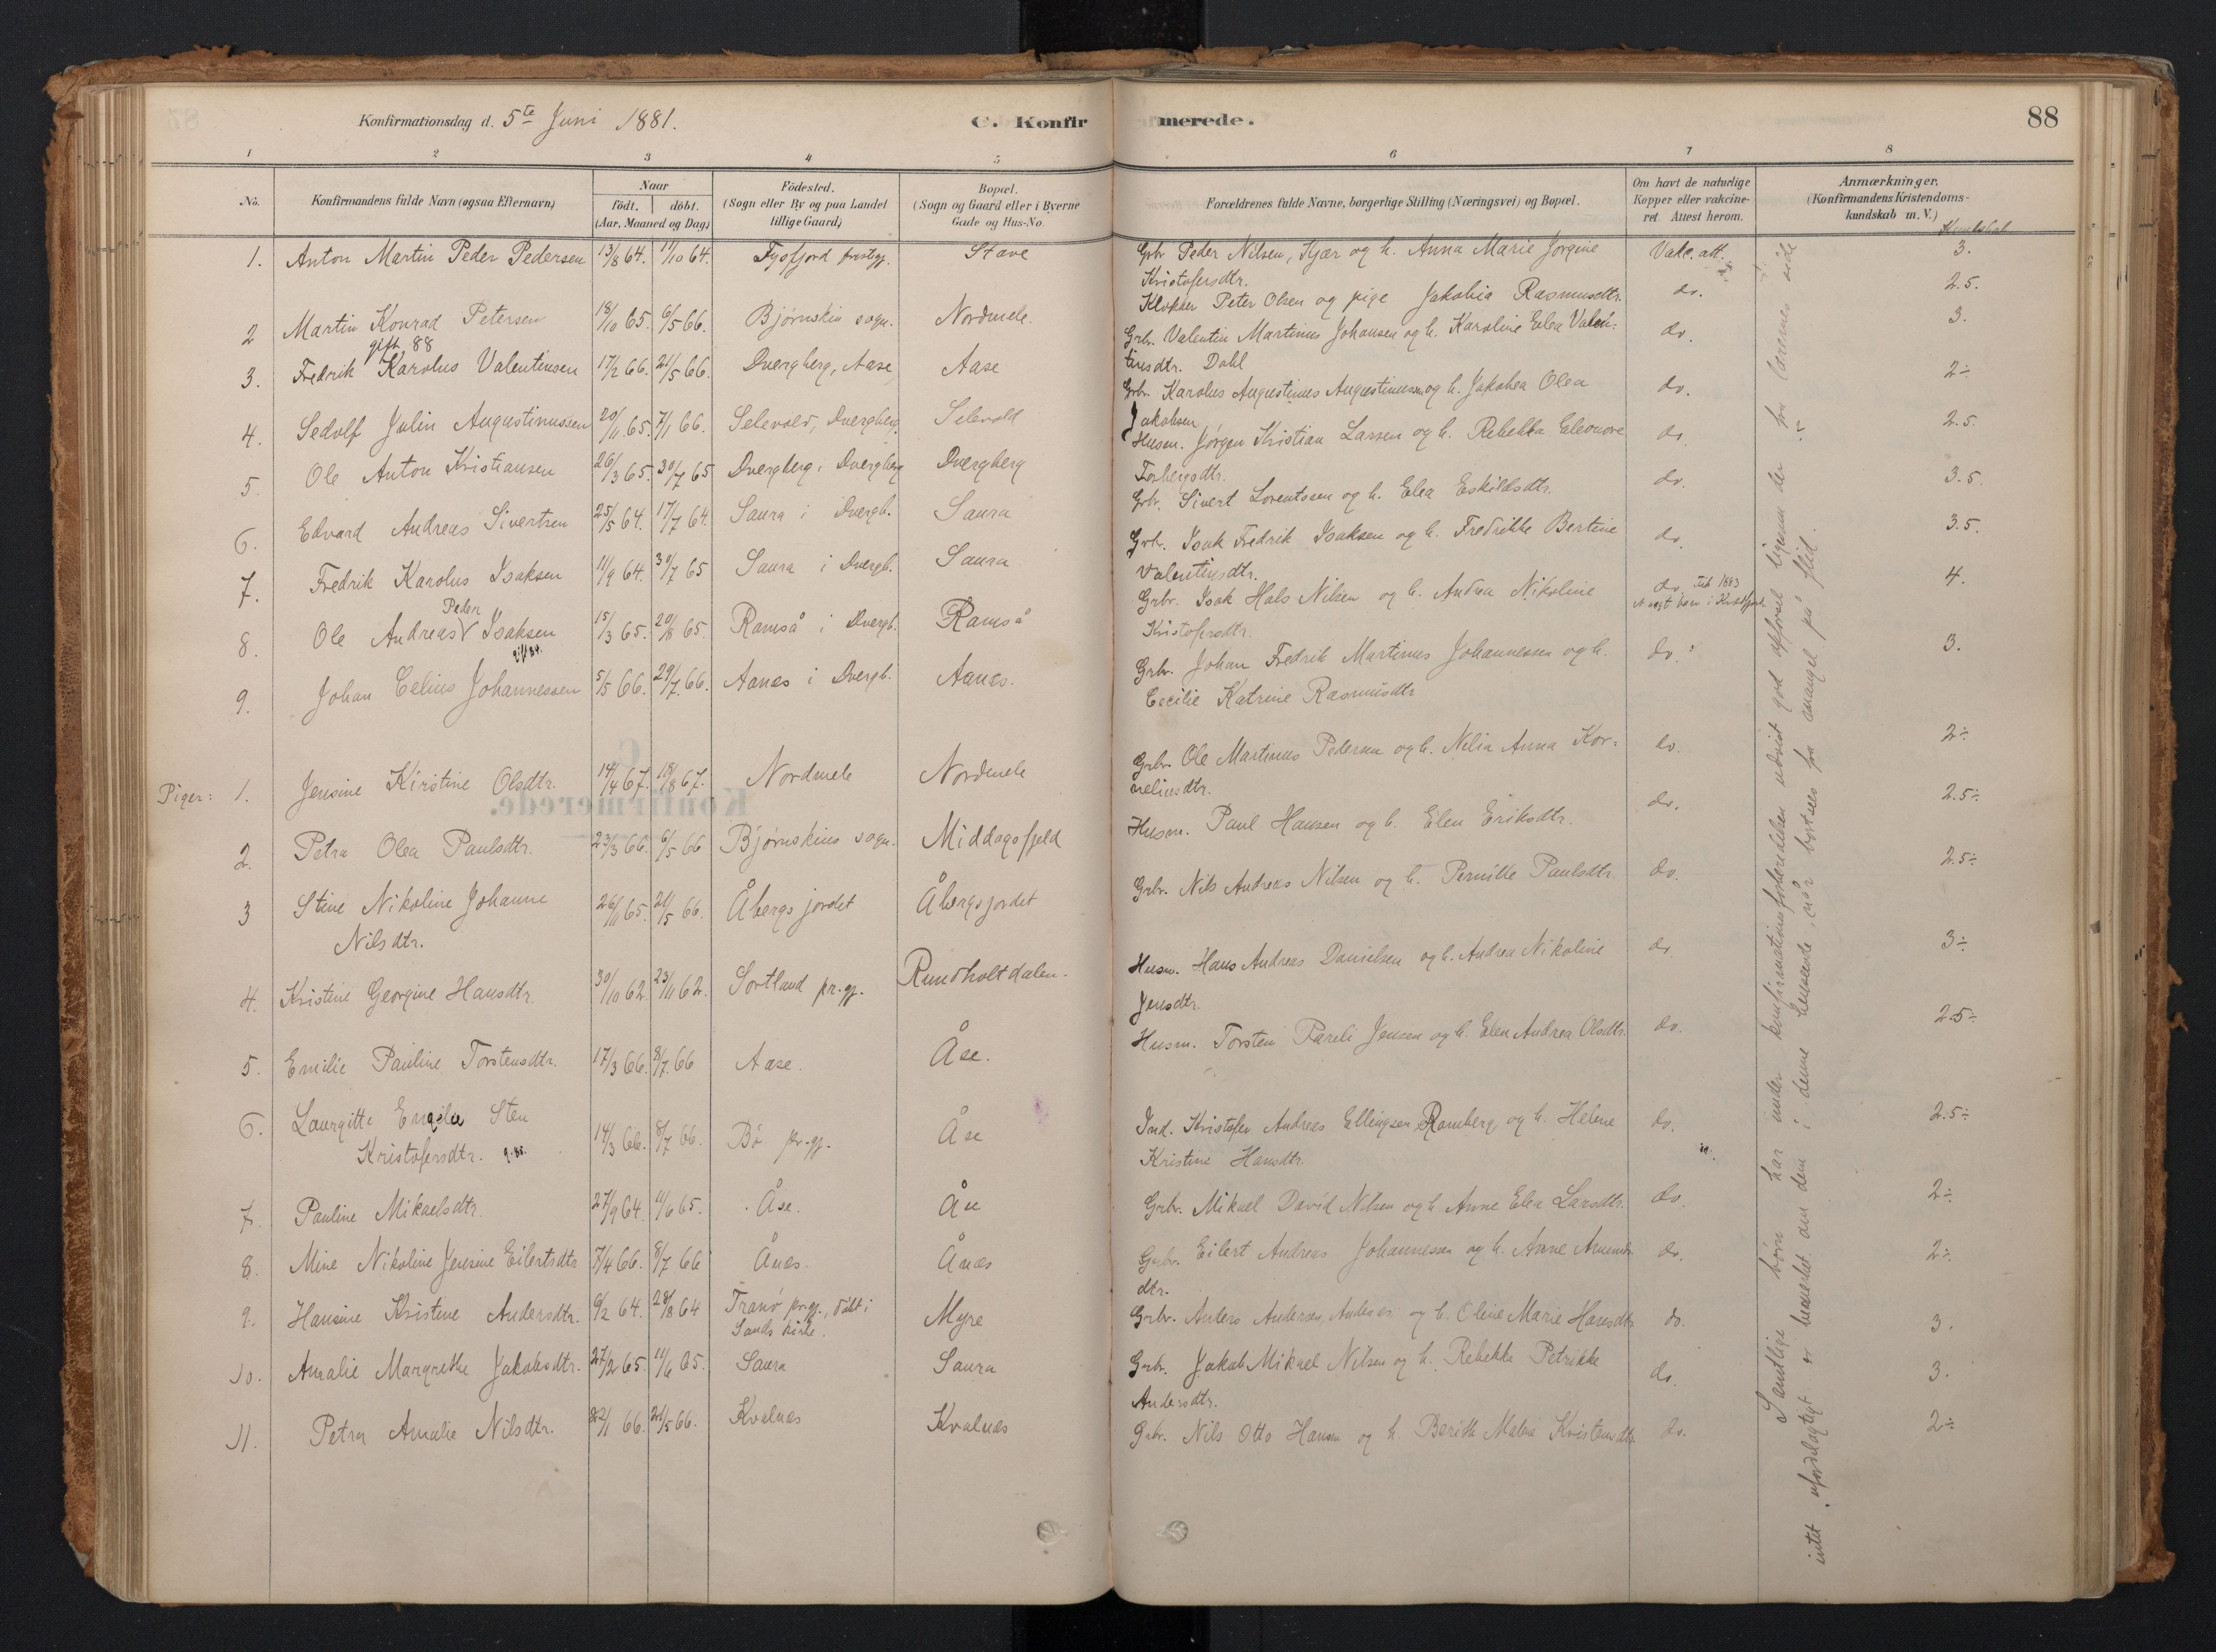 Konfirmationsdag d. 5te Juni 1881.
C. Konfirmerede.
88
1 2 3 4 5 6 7 8
No.
Konfirmandens fulde Navn (ogsaa Efternavn)
Naar
födt. döbt.
(Aar, Maaned og Dag)
Födested.
(Sogn eller By og paa Landet
tillige Gaard)
Bopæl.
(Sogn og Gaard eller i Byerne
Gade og Hus-No.
Forældrenes fulde Navne, borgerlige Stilling (Næringsvei) og Bopæl.
Om havt de naturlige
Kopper eller vakcine-
ret. Attest herom.
Anmærkninger.
(Konfirmandens Kristendoms-
kundskab m. V.)
Kundskab
1. Anton Martin Peder Pedersen 13/8 64. 17/10 64. Tysfjord prestegj. Stave Grbr. Peder Nilsen, Kjær og h. Anna Marie Jørgine Vakc. att. 3.
Kristofersdtr.
2 Martin Konrad Petersen 18/10 65. 6/5 66. Bjørnskin sogn. Nordmele. Klokker Peter Olsen og pige Jakobia Rasmusdtr. do. 2.5.
gift 88
3. Fredrik Karolus Valentinsen 17/2 66. 21/5 66. Dvergberg, Aase Aase Grbr. Valentin Martinus Johansen og h. Karoline Elea Valen= do. 3.
tinsdtr. Dahl
4. Sedolf Julin Augustinussen 20/11 65. 7/1 66. Selevold, Dvergberg. Selevold Grbr. Karolus Augustinus Augustinussen og h. Jakobea Olea do. 2÷
Jakobsen
5. Ole Anton Kristiansen 26/3 65. 30/7 65 Dvergberg i Dvergberg Dvergberg Husm. Jørgen Kristian Larsen og h. Rebekka Eleonore do. 2.5.
Torbergsdtr.
6. Edvard Andreas Sivertsen 25/5 64. 17/7 64. Saura i Dvergb. Saura Grbr. Sivert Lorentssen og h. Elea Eskildsdtr. do. 3.5.
7. Fredrik Karolus Isaksen 11/9 64. 30/7 65 Saura i Dvergb. Saura Grbr. Isak Fredrik Isaksen og h. Fredrikke Bertine do. 3.5.
Valentinsdtr.
Peder
8. Ole Andreas V Isaksen 15/3 65. 20/8 65. Ramså i Dvergb. Ramså Grbr. Isak Hals Nilsen og h. Andrea Nikoline do. 4.
Kristofersdtr.
gift 84.
9. Johan Celius Johannessen 5/5 66. 29/7 66. Aanes i Dvergb. Aanes. Grbr. Johan Fredrik Martinus Johannessen og h. do. 3.
Cecilie Katrine Rasmusdtr
Piger: 1. Jensine Kirstine Olsdtr. 14/4 67. 18/8 67. Nordmele Nordmele Grbr. Ole Martinus Pedersen og h. Nilia Anna Kor= do. 2÷
neliusdtr.
2. Petra Olea Paulsdtr. 23/3 66. 6/5 66 Bjørnskins sogn. Middagsfjeld Husm. Paul Hansen og h. Elen Eriksdtr. do. 2.5÷
3 Stine Nikoline Johanne 26/11 65. 21/5 66. Åbergsjordet Åbergsjordet Grbr. Nils Andreas Nilsen og h. Pernille Paulsdtr. do. 2.5÷
Nilsdtr.
4. Kristine Georgine Hansdtr. 30/10 62. 23/11 62. Sortland pr.gj. Rundholtdalen. Husm. Hans Andreas Danielsen og h. Andrea Nikoline do. 3÷
Jensdtr.
5. Emilie Pauline Torstensdtr. 17/3 66. 8/7 66 Aase. Åse. Husm. Torsten Pareli Jensen og h. Elen Andrea Olsdtr. do. 2.5÷
6. Laurgitte Engelia Sten 14/3 66. 8/7 66. Bø pr.gj. Åse Ind. Kristofer Andreas Ellingsen, Ramberg og h. Helene do. 2.5÷
Kristofersdtr. Kristine Hansdtr.
7. Pauline Mikaelsdtr. 27/9 64. 11/6 65. Åse. Åse Grbr. Mikael David Nilsen og h. Anne Elea Larsdtr. do. 2÷
8. Mine Nikoline Jensine Eilertsdtr 7/4 66. 8/7 66 Ånes. Ånes Grbr. Eilert Andreas Johannessen og h. Anne do. 2÷
dtr.
9. Hansine Kristine Andersdtr. 6/2 64. 28/8 64 Tranø pr.gj., døbt i Myre Grbr. Anders Andersen, Andenes og h. Oline Marie Hansdtr do. 3.
Sands kirke.
10. Amalie Margrethe Jakobsdtr. 27/2 65. 11/6 65. Saura Saura Grbr. Jakob Mikael Nilsen og h. Rebekka Petrikke do. 3.
Andersdtr.
11. Petra Amalie Nilsdtr. 22/1 66. 21/5 66. Kvalnes Kvalnes Grbr. Nils Otto Hansen og h. Berith Malea Kristensdtr. do. 2÷
Samtlige børn har under konfirmationsforberedelsen udvist god opførsel ligesom der fra lærernes side
intet ufordelagtigt er bemerket om dem i denne henseende, når bortsees fra mangel på flid.